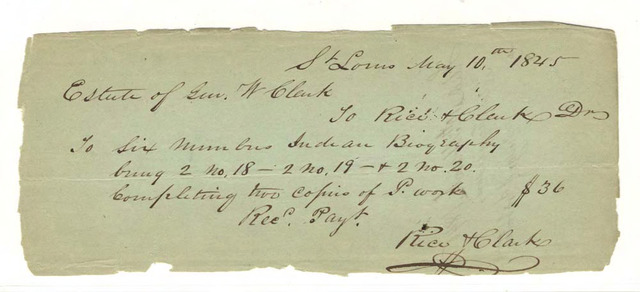 St Louis May 10.th 1845
Estate of Gen. W Clark
To Rice & Clark Dr
To Six Numbers Indian Biography
being 2 No. 18 – 2 No. 19 – & 2 No. 20.
Completing two copies of P. work $36
Recd. Payt.
Rice & Clark